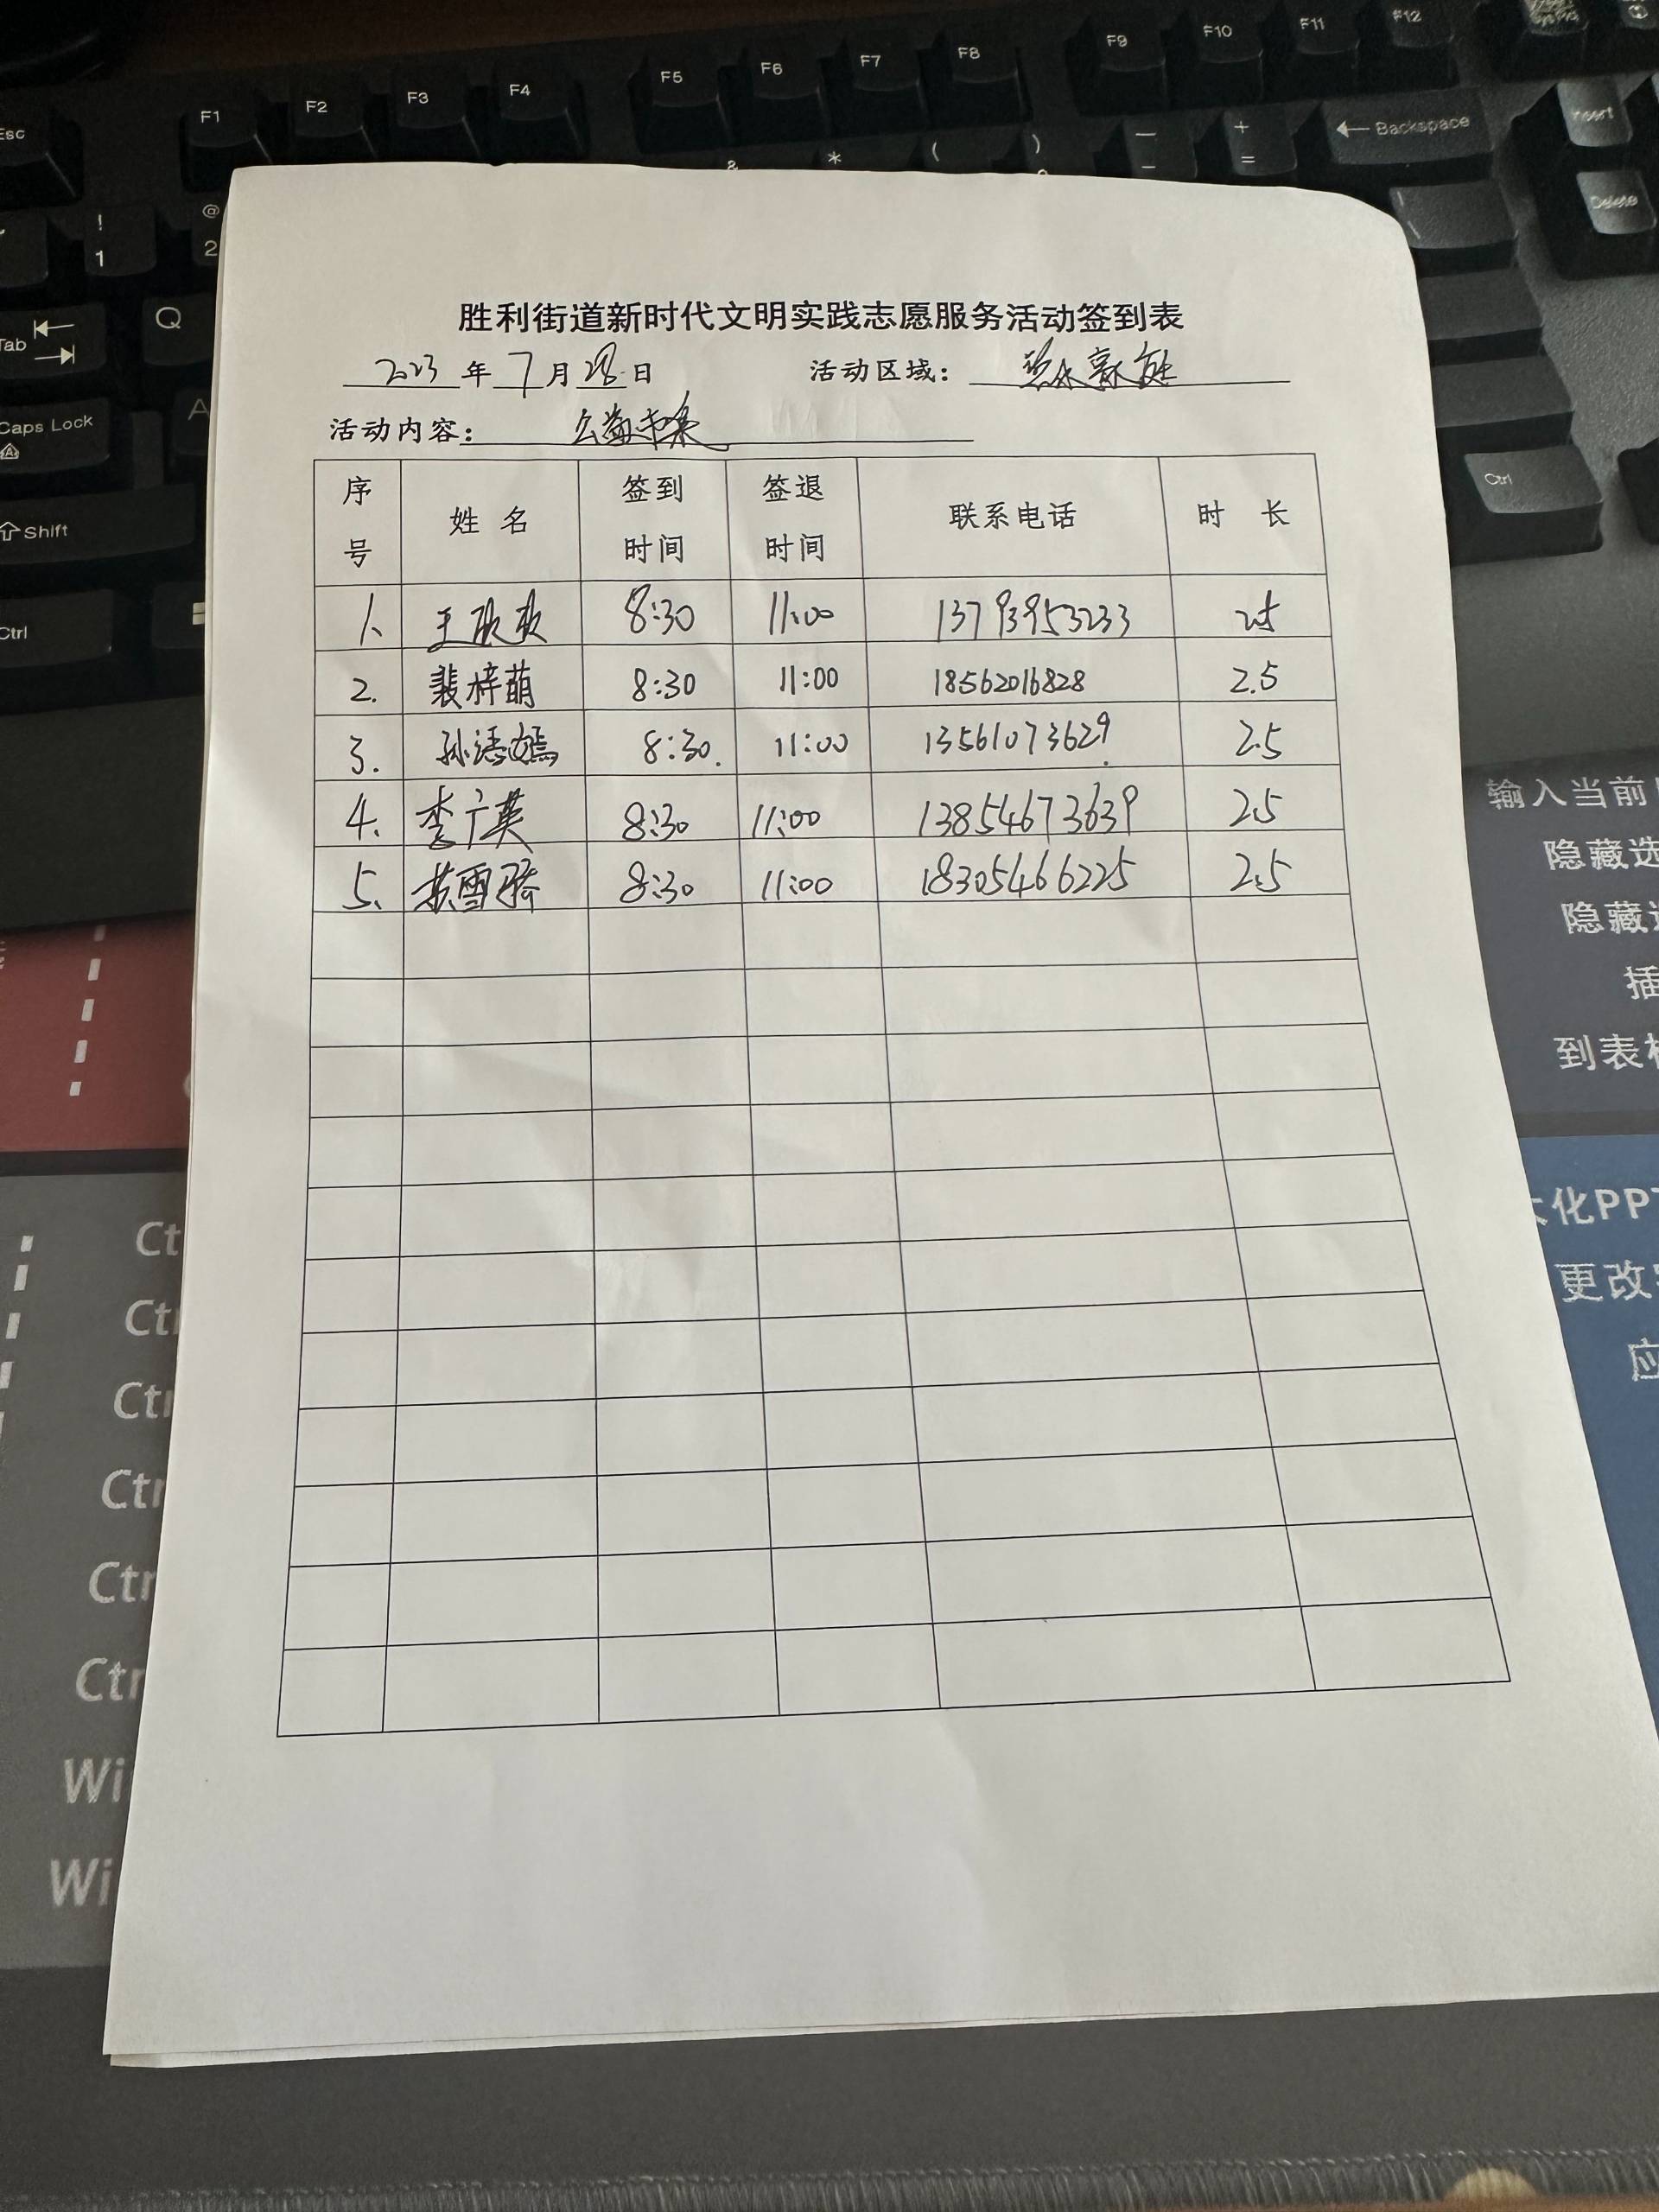 Esc F1 F2 F3 F4 F5 F6 F7 F8 F9 F10 F11 F12
! 1 @ 2 & * ( ) — + = ← Backspace Insert
Delete
Tab Q
Caps Lock A
Shift
Ctrl
Ctrl
胜利街道新时代文明实践志愿服务活动签到表
2023 年 7 月 28 日 活动区域:
活动内容: 公益市集
序号 姓 名 签到时间 签退时间 联系电话 时 长
1. 王欣欣 8:30 11:00 13793953233 2.5
2. 裴梓萌 8:30 11:00 18562016828 2.5
3. 孙 8:30. 11:00 13561073629. 2.5
4. 李广英 8:30 11:00 13854673639 2.5
5. 雪 8:30 11:00 18305466225 2.5
输入当前
隐藏选
隐藏
插
到表格
化PPT
更改
应
Ct
Ctr
Ctr
Ctr
Ctr
Ctr
Wi
Wi